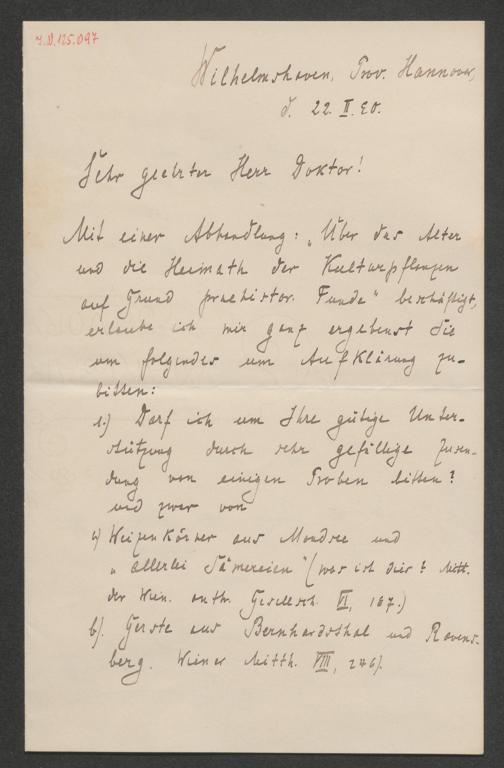 I.N. 125.097
Wilhelmshaven, Prov. Hannover,
d. 22. II. 90.
Sehr geehrter Herr Doktor!
Mit einer Abhandlung: „Über das Alter
und die Heimath der Kulturpflanzen
auf Grund praehistor. Funde" beschäftigt,
erlaube ich mir ganz ergebenst Sie
um folgendes um Aufklärung zu-
bitten:
1.) Darf ich um Ihre gütige Unter-
stützung durch sehr gefällige Zusen-
dung von einigen Proben bitten?
und zwar von
a) Weizenkörner aus Mondsee und
„allerlei Sämereien" (was ist dies? Mitt.
der Wien. anthr. Gesellsch. VI, 167.)
b). Gerste aus Bernhardsthal und Ravens-
berg. Wiener Mitth. VIII, 246).